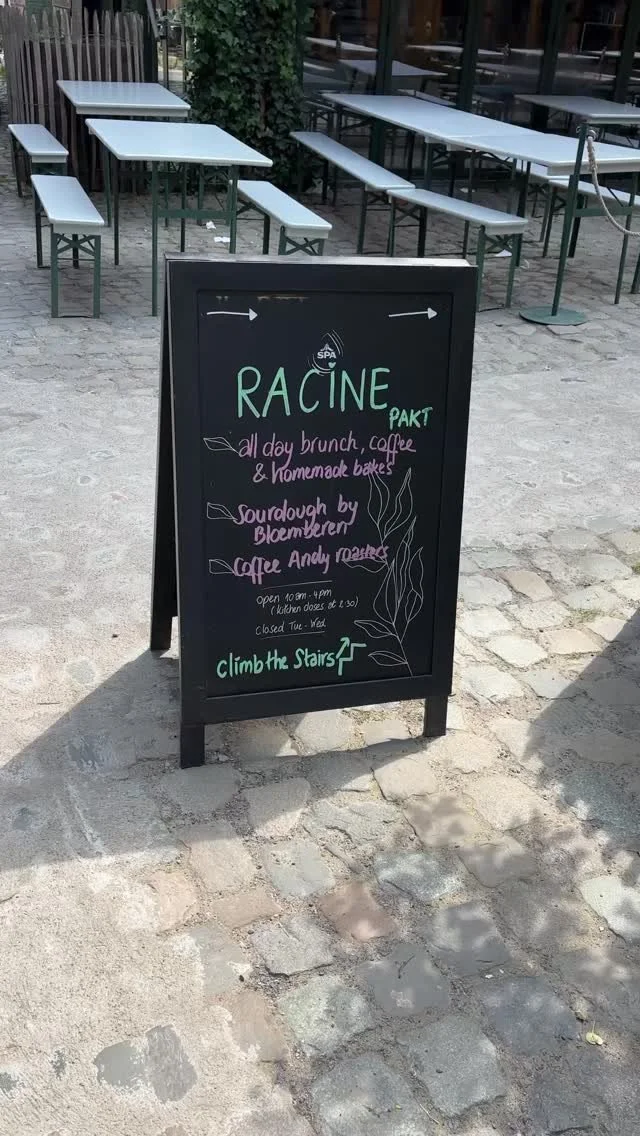 SPA
RACINE
PAKT
all day brunch, coffee
& homemade bakes
Sourdough by
Bloemberen
Coffee Andy roasters
Open 10am - 4pm
(kitchen closes at 2:30)
Closed Tue - Wed
climb the Stairs